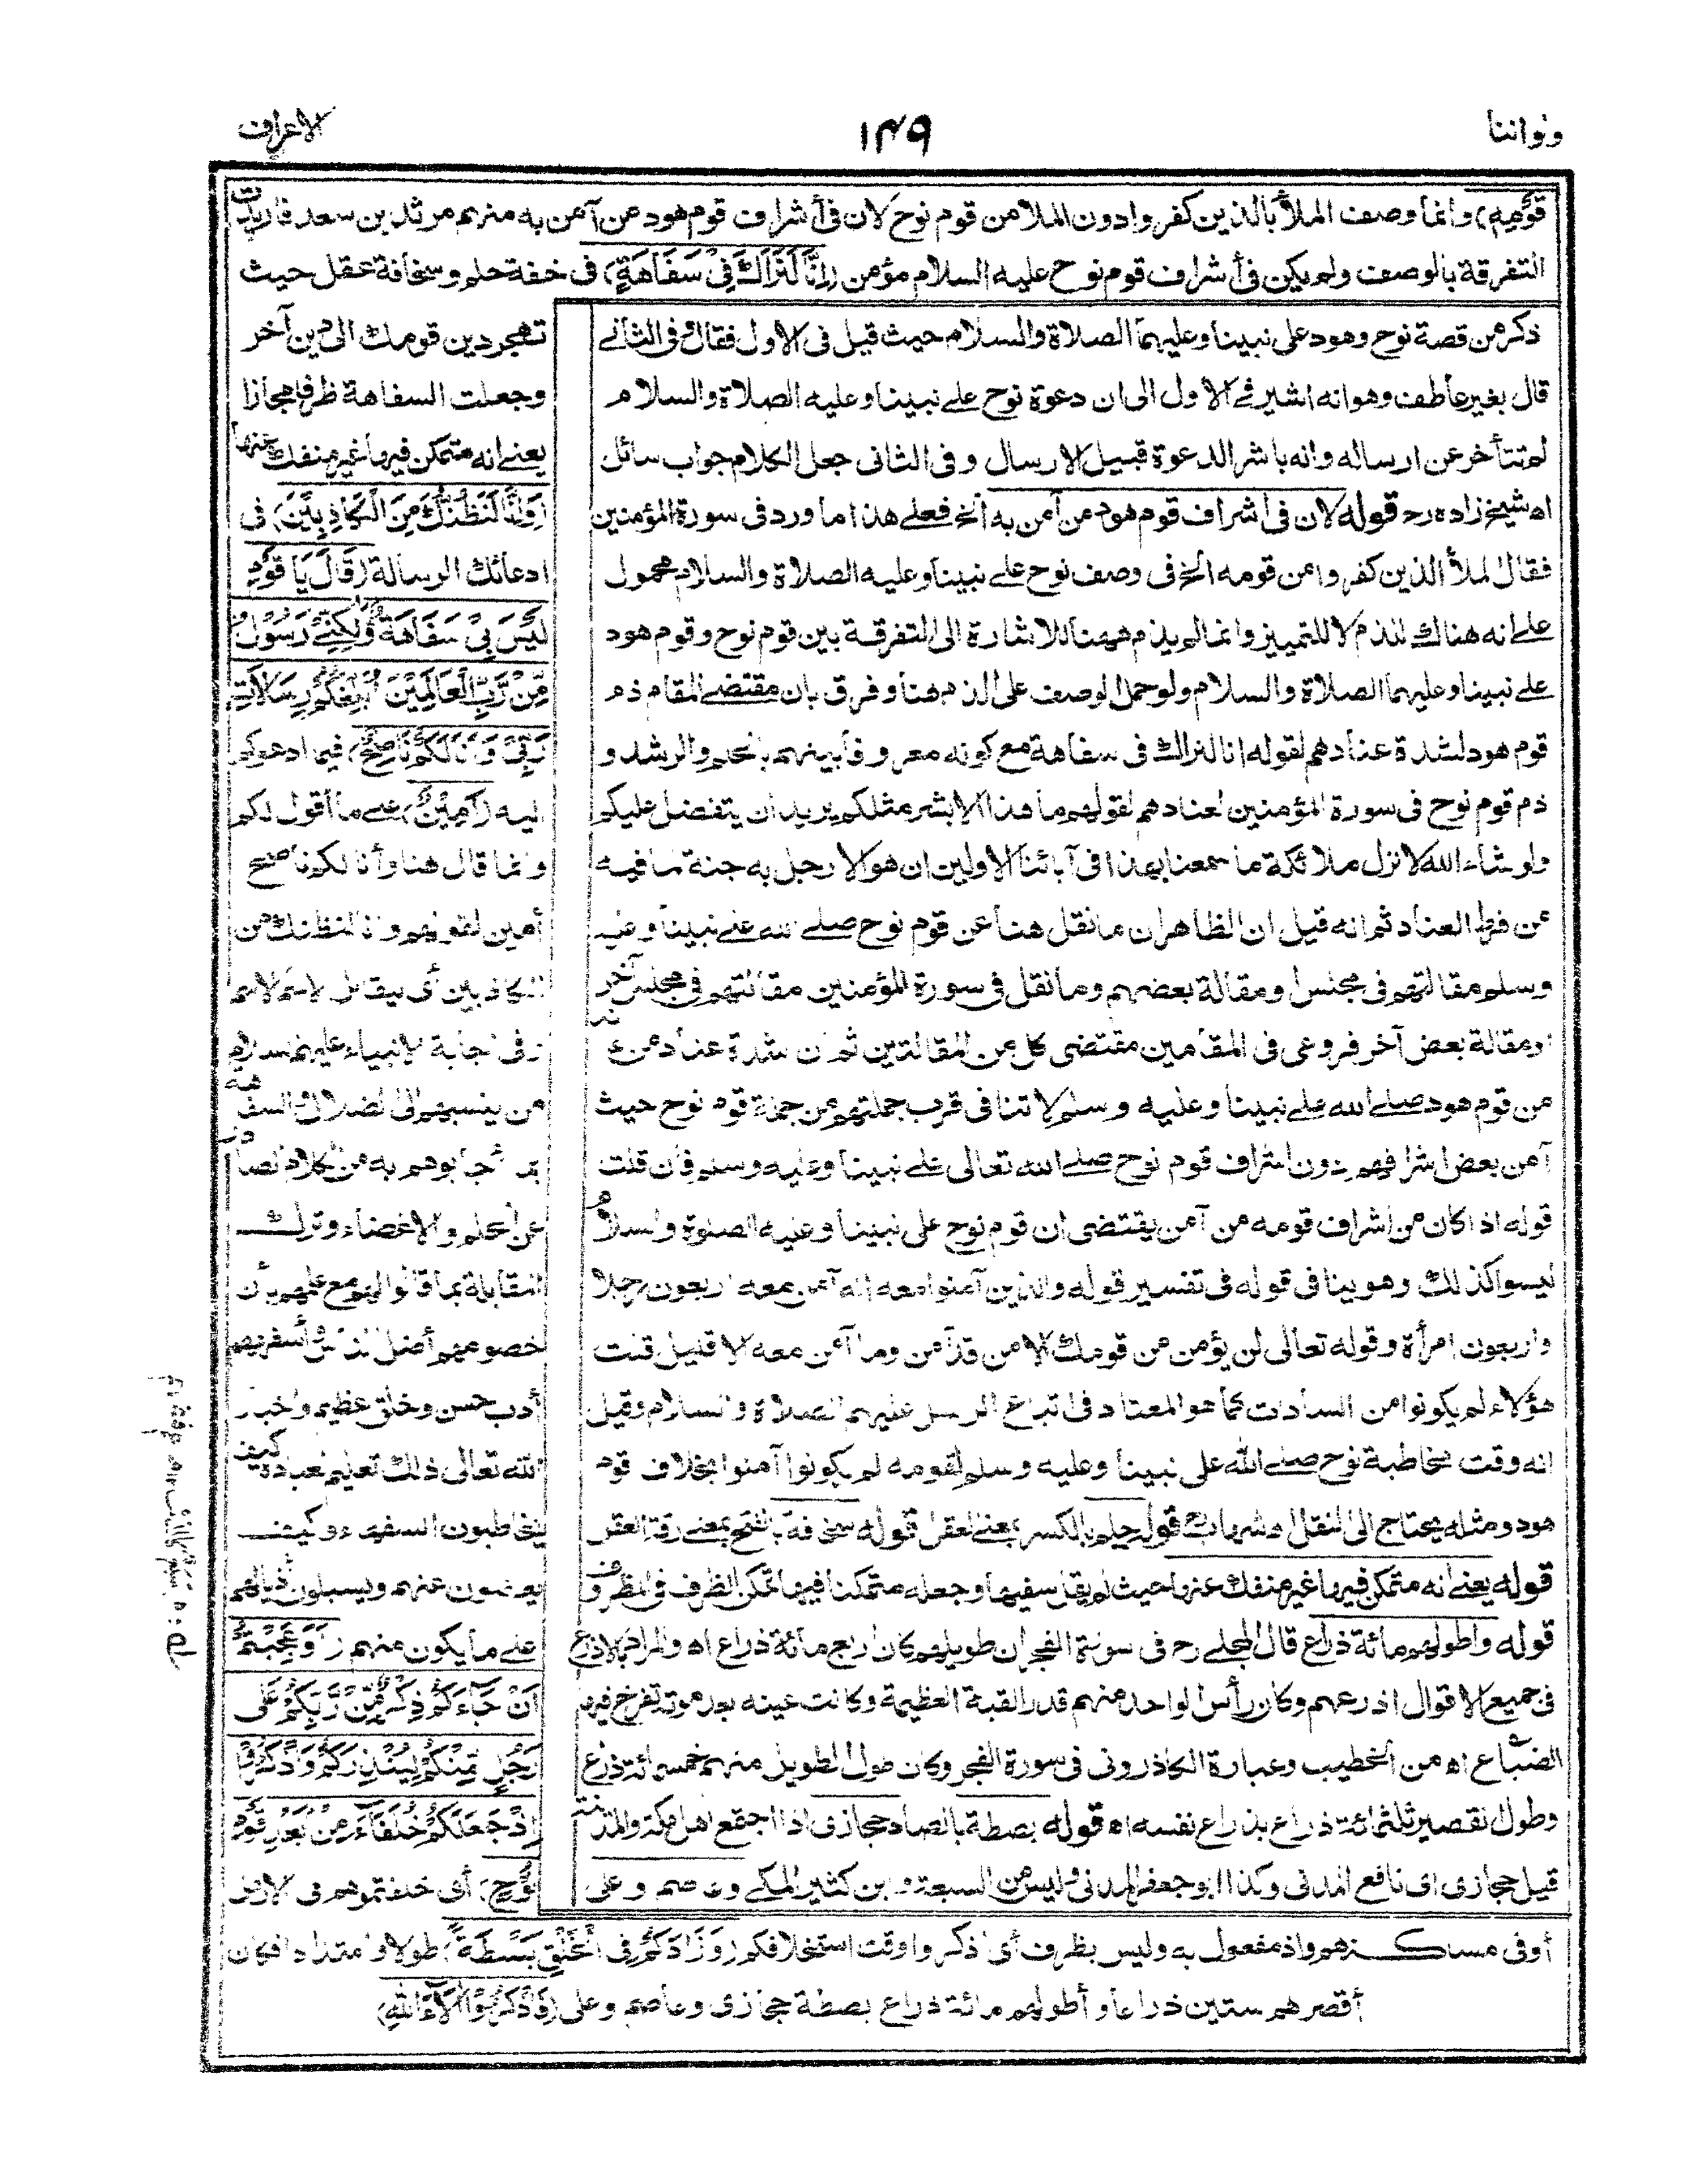 ولواننا
١٤٩
الاعراف
قَوْمِهِ) وانما وصف الملأ بالذين كفروا دون الملا من قوم نوح لان فى أشراف قوم هود من آمن به منهم مرثد بن سعد فاريدت
التفرقة بالوصف ولم يكن فى أشراف قوم نوح عليه السلام مؤمن (اِنَّا لَنَرَاكَ فِىْ سَفَاهَةٍ) فى خفة حلم وسخافة عقل حيث
تهجر دين قومك الى دين آخر
وجعلت السفاهة ظرفا مجازا
يعنى انه متمكن فيها غير منفك عنها
(وَاِنَّا لَنَظُنُّكَ مِنَ الْكَاذِبِيْنَ) فى
ادعائك الرسالة (قَالَ يَا قَوْمِ
لَيْسَ بِىْ سَفَاهَةٌ وَّلٰكِنِّىْ رَسُوْلٌ
مِّنْ رَّبِّ الْعَالَمِيْنَ اُبَلِّغُكُمْ رِسَالَاتِ
رَبِّىْ وَاَنَا لَكُمْ نَاصِحٌ) فيما ادعوكم
اليه (اَمِيْنٌ) على ما أقول لكم
وانما قال هنا وأنا لكم ناصح
أمين لقولهم وانا لنظنك من
الكاذبين أى ليقابل الاسم الاسم
وفى اجابة الانبياء عليهم السلام
من ينسبهم الى الضلال والسفاهة
بما أجابوهم به من الكلام الصادر
عن الحلم والاغضاء وترك
المقابلة بما قالوا لهم مع علمهم بأن
خصومهم أضل الناس وأسفههم
أدب حسن وخلق عظيم واخبار
الله تعالى ذلك تعليم لعباده كيف
يخاطبون السفهاء وكيف
يغضون عنهم ويسبلون أذيالهم
على ما يكون منهم (اَوَعَجِبْتُمْ
اَنْ جَآءَكُمْ ذِكْرٌ مِّنْ رَّبِّكُمْ عَلٰى
رَجُلٍ مِّنْكُمْ لِيُنْذِرَكُمْ وَاذْكُرُوْا
اِذْ جَعَلَكُمْ خُلَفَآءَ مِنْ بَعْدِ قَوْمِ
نُوْحٍ) أى خلفتموهم فى الارض
ذكر من قصة نوح وهود على نبينا وعليهما الصلاة والسلام حيث قيل فى الاول فقال وفى الثانى
قال بغير عاطف وهو انه اشير فى الاول الى ان دعوة نوح على نبينا وعليه الصلاة والسلام
لم تتأخر عن ارساله وانه باشر الدعوة قبيل الارسال وفى الثانى جعل الكلام جواب سائل
اه شيخ زاده رح قوله لان فى اشراف قوم هود من آمن به الخ فعلى هذا ما ورد فى سورة المؤمنين
فقال الملأ الذين كفروا من قومه الخ فى وصف نوح على نبينا وعليه الصلاة والسلام محمول
على انه هناك للذم لا للتمييز وانما لم يذم ههنا للاشارة الى التفرقة بين قوم نوح وقوم هود
على نبينا وعليهما الصلاة والسلام ولو حمل الوصف على الذم هنا وفرق بان مقتضى المقام ذم
قوم هود لشدة عنادهم لقوله انا لنراك فى سفاهة مع كونه معروفا بينهم بالحلم والرشد و
ذم قوم نوح فى سورة المؤمنين لعنادهم لقولهم ما هذا الا بشر مثلكم يريد ان يتفضل عليكم
ولو شاء الله لانزل ملائكة ما سمعنا بهذا فى آبائنا الاولين ان هو الا رجل به جنة لما فيه
من فرط العناد ثم انه قيل ان الظاهر ان ما نقل هنا عن قوم نوح صلى الله على نبينا وعليه
وسلم مقالتهم فى مجلس او مقالة بعضهم وما نقل فى سورة المؤمنين مقالتهم فى مجلس آخر
او مقالة بعض آخر فروعى فى المقامين مقتضى كل من المقالتين ثم ان شدة عناد من عاند
من قوم هود صلى الله على نبينا وعليه وسلم لا تنافى قرب جملتهم من جملة قوم نوح حيث
آمن بعض اشرافهم دون اشراف قوم نوح صلى الله تعالى على نبينا وعليه وسلم فان قلت
قوله اذ كان من اشراف قومه من آمن يقتضى ان قوم نوح على نبينا وعليه الصلوة والسلام
ليسوا كذلك وهو ينافى قوله فى تفسير قوله والذين آمنوا معه انه آمن معه اربعون رجلا
واربعون امرأة وقوله تعالى لن يؤمن من قومك الا من قد آمن وما آمن معه الا قليل قلت
هؤلاء لم يكونوا من السادات كما هو المعتاد فى اتباع الرسل عليهم الصلاة والسلام وقيل
انه وقت مخاطبة نوح صلى الله على نبينا وعليه وسلم لقومه لم يكونوا آمنوا بخلاف قوم
هود ومثله يحتاج الى النقل اه شهاب رح قوله حلم بالكسر بمعنى العقل قوله سخافة بالفتح بمعنى رقة العقل
قوله يعنى انه متمكن فيها غير منفك عنها حيث لم يقل سفيها وجعله متمكنا فيها تمكن الظرف فى المظروف
قوله واطولهم مائة ذراع قال المحلى رح فى سورة الفجر ان طويلهم كان اربع مائة ذراع اه والمراد بالاذرع
فى جميع الاقوال اذرعهم وكان رأس الواحد منهم قدر القبة العظيمة وكانت عينه بعد موته تفرخ فيها
الضباع اه من الخطيب وعبارة الكاذرونى فى سورة الفجر وكان طول الطويل منهم خمسمائة ذراع
وطول القصير ثلثمائة ذراع بذراع نفسه اه قوله بصطة بالصاد حجازى اذا اجتمع اهل مكة والمدينة
قيل حجازى اى نافع المدنى وكذا ابو جعفر المدنى وليس من السبعة وابن كثير المكى وعاصم وعلى
أو فى مساكنهم واذ مفعول به وليس بظرف أى اذكروا وقت استخلافكم (وَزَادَكُمْ فِى الْخَلْقِ بَسْطَةً) طولا وامتدادا فكان
أقصرهم ستين ذراعا وأطولهم مائة ذراع بصطة حجازى وعاصم وعلى (فَاذْكُرُوْا اٰلَآءَ اللهِ)